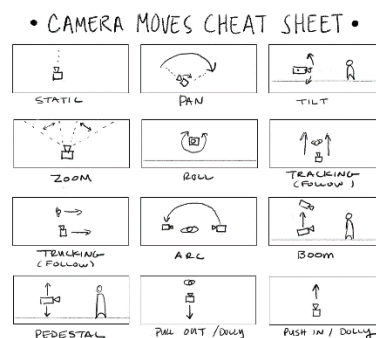 • CAMERA MOVES CHEAT SHEET •
STATIC
PAN
TILT
ZOOM
ROLL
TRACKING
(FOLLOW)
TRUCKING
(FOLLOW)
ARC
BOOM
PEDESTAL
PULL OUT / DOLLY
PUSH IN / DOLLY